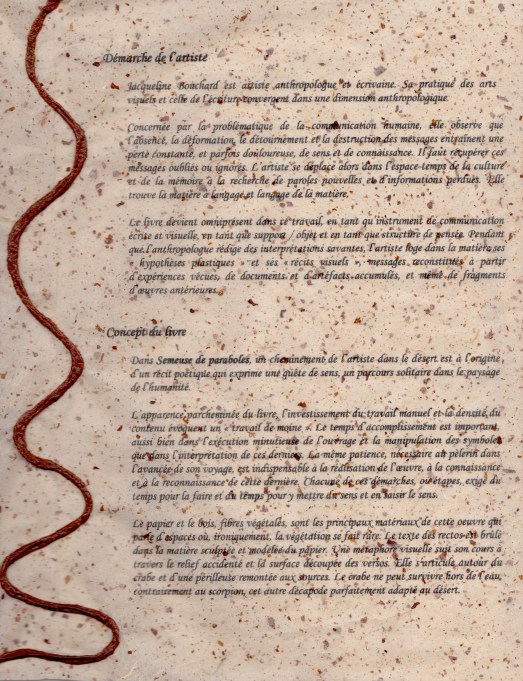 Démarche de l'artiste
Jacqueline Bouchard est artiste anthropologue et écrivaine. Sa pratique des arts
visuels et celle de l'écriture convergent dans une dimension anthropologique.
Concernée par la problématique de la communication humaine, elle observe que
l'absence, la déformation, le détournement et la destruction des messages entraînent une
perte constante, et parfois douloureuse, de sens et de connaissance. Il faut récupérer ces
messages oubliés ou ignorés. L'artiste se déplace alors dans l'espace-temps de la culture
et de la mémoire à la recherche de paroles nouvelles et d'informations perdues. Elle
trouve la matière à langage et langage de la matière.
Le livre devient omniprésent dans ce travail, en tant qu'instrument de communication
écrite et visuelle, en tant que support / objet et en tant que structure de pensée. Pendant
que l'anthropologue rédige des interprétations savantes, l'artiste loge dans la matière ses
« hypothèses plastiques » et ses « récits visuels », messages reconstitués à partir
d'expériences vécues, de documents et d'artéfacts accumulés, et même de fragments
d'œuvres antérieures.
Concept du livre
Dans Semeuse de paraboles, un cheminement de l'artiste dans le désert est à l'origine
d'un récit poétique qui exprime une quête de sens, un parcours solitaire dans le paysage
de l'humanité.
L'apparence parcheminée du livre, l'investissement du travail manuel et la densité du
contenu évoquent un « travail de moine ». Le temps d'accomplissement est important
aussi bien dans l'exécution minutieuse de l'ouvrage et la manipulation des symboles
que dans l'interprétation de ces derniers. La même patience, nécessaire au pèlerin dans
l'avancée de son voyage, est indispensable à la réalisation de l'œuvre, à la connaissance
et à la reconnaissance de cette dernière. Chacune de ces démarches, ou étapes, exige du
temps pour la faire et du temps pour y mettre du sens et en saisir le sens.
Le papier et le bois, fibres végétales, sont les principaux matériaux de cette oeuvre qui
parle d'espaces où, ironiquement, la végétation se fait rare. Le texte des rectos est brûlé
dans la matière sculptée et modelée du papier. Une métaphore visuelle suit son cours à
travers le relief accidenté et la surface découpée des versos. Elle s'articule autour du
crabe et d'une périlleuse remontée aux sources. Le crabe ne peut survivre hors de l'eau,
contrairement au scorpion, cet autre décapode parfaitement adapté au désert.